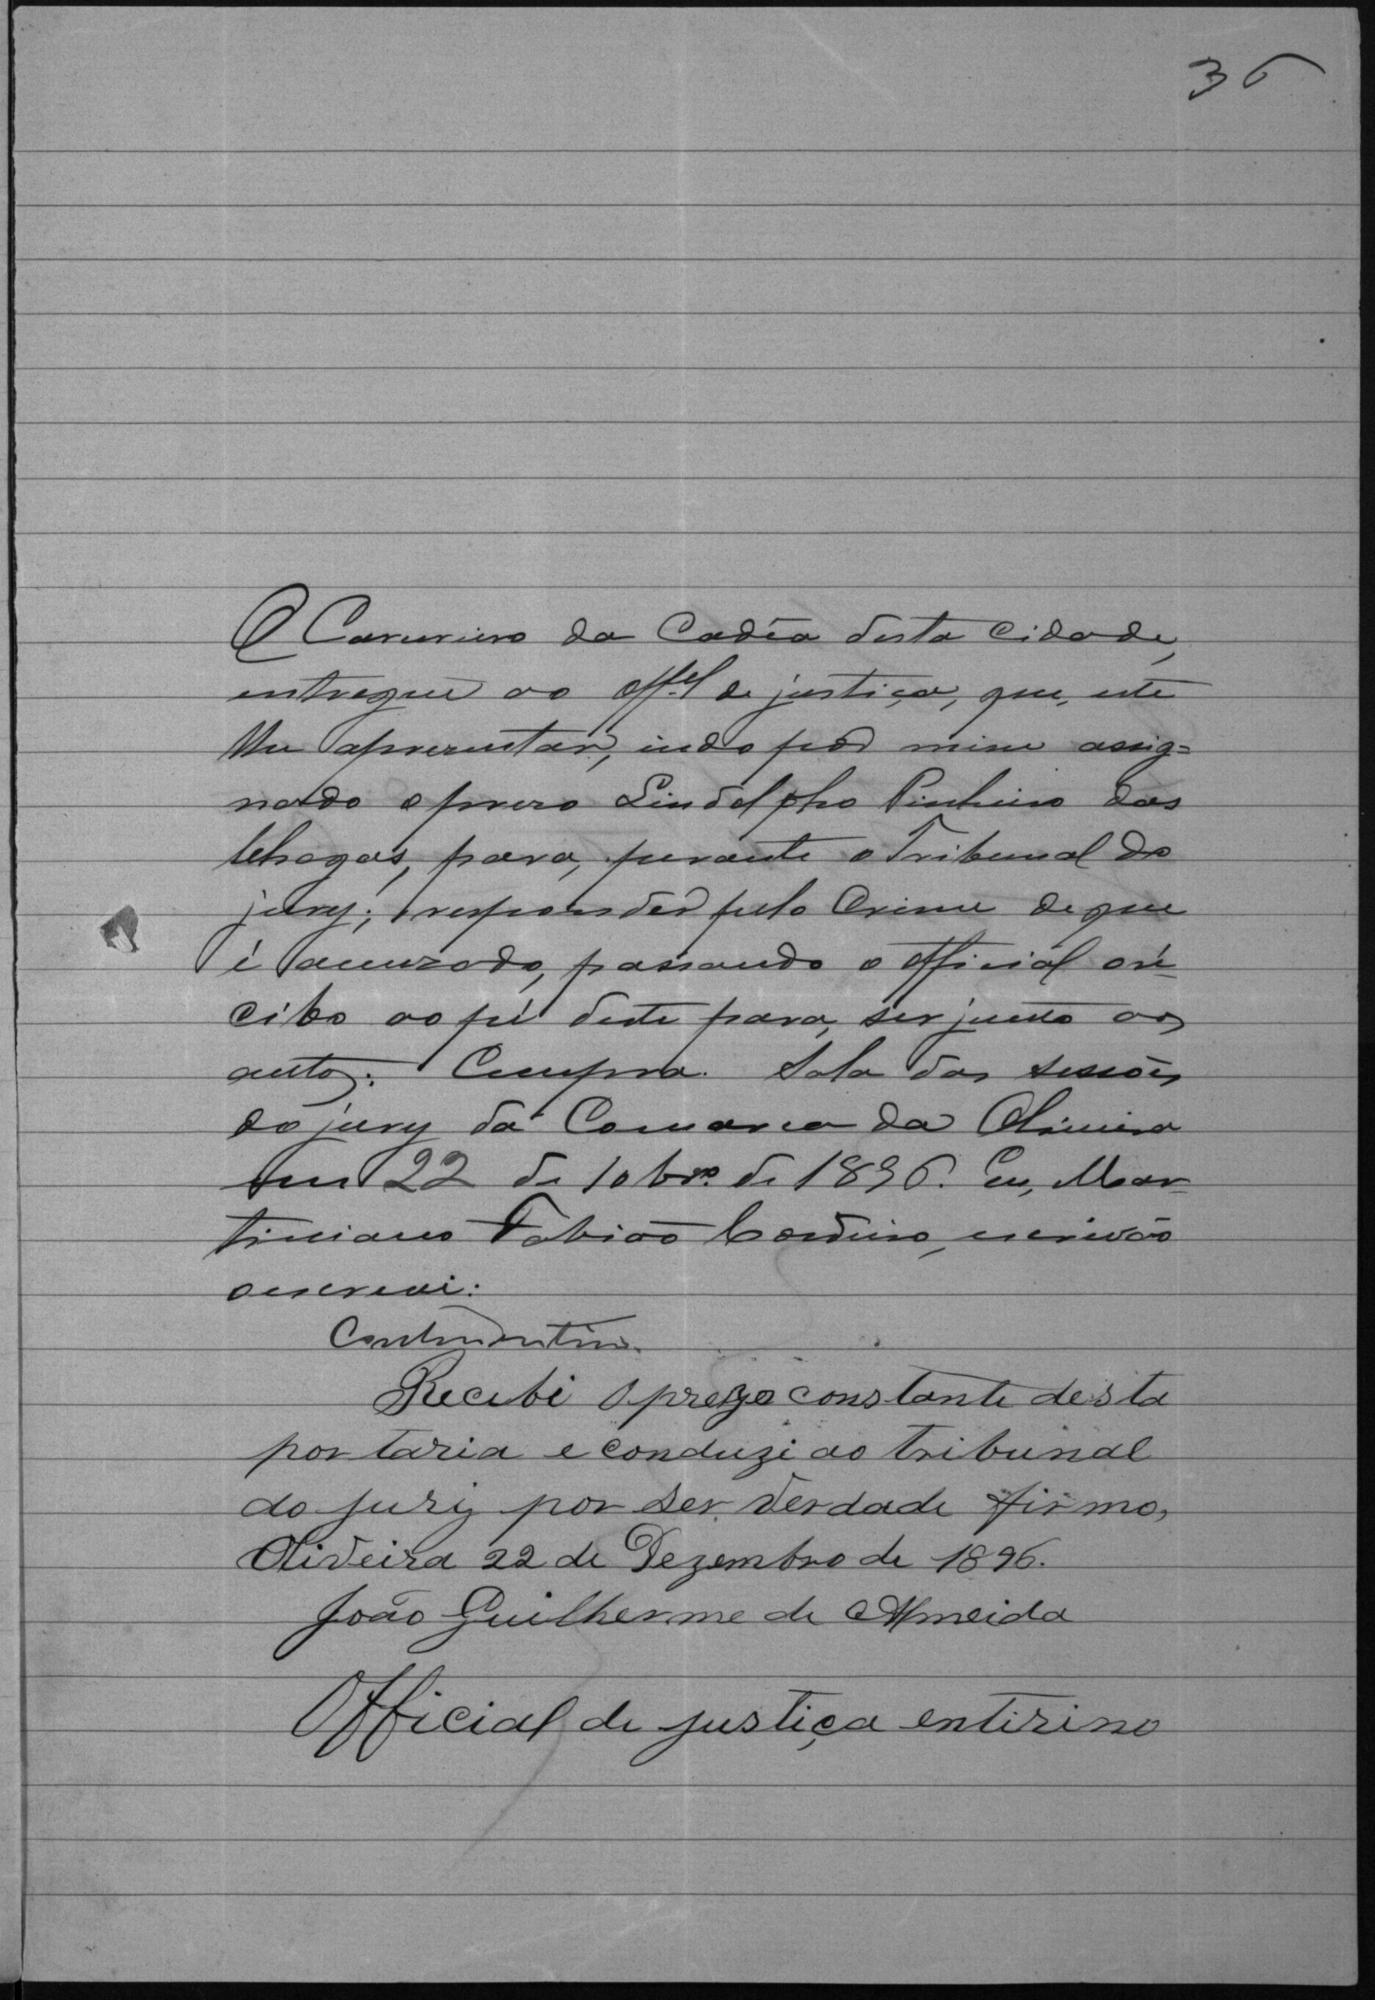 36
O Carcereiro da Cadêa desta cidade,
entregue ao Off.el de justiça, que, este
lhe apresentar, indo por mim assig=
nado o prezo Lindolpho Pinheiro das
Chagas, para, perante o Tribunal do
jury; responder pelo Crime de que
é accuzado, passando o official o ré-
cibo ao pé deste para, ser junto aos
autos. Cumpra. Sala das sessões
do jury da Comarca da Oliveira
em 22 de 10br.o de 1896. Eu, Mar-
tiniano Fabião Cordeiro, escrivão
o escrevi:
Recebi o prezo constante desta
portaria e conduzi ao tribunal
do jury por ser verdade firmo,
Oliveira 22 de Dezembro de 1896.
João Guilherme de Almeida
Official de justiça entirino